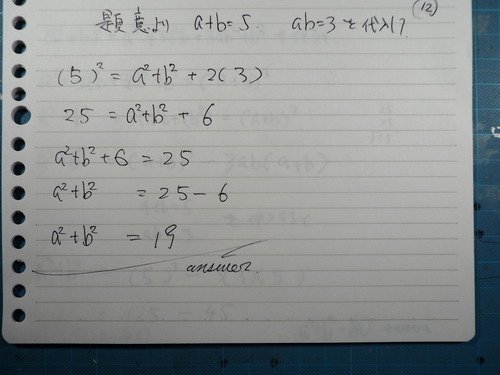 (12)
題意より a+b=5. ab=3を代入して
(5)² = a²+b² + 2(3)
25 = a²+b² + 6
a²+b²+6 = 25
a²+b² = 25-6
a²+b² = 19
answer.